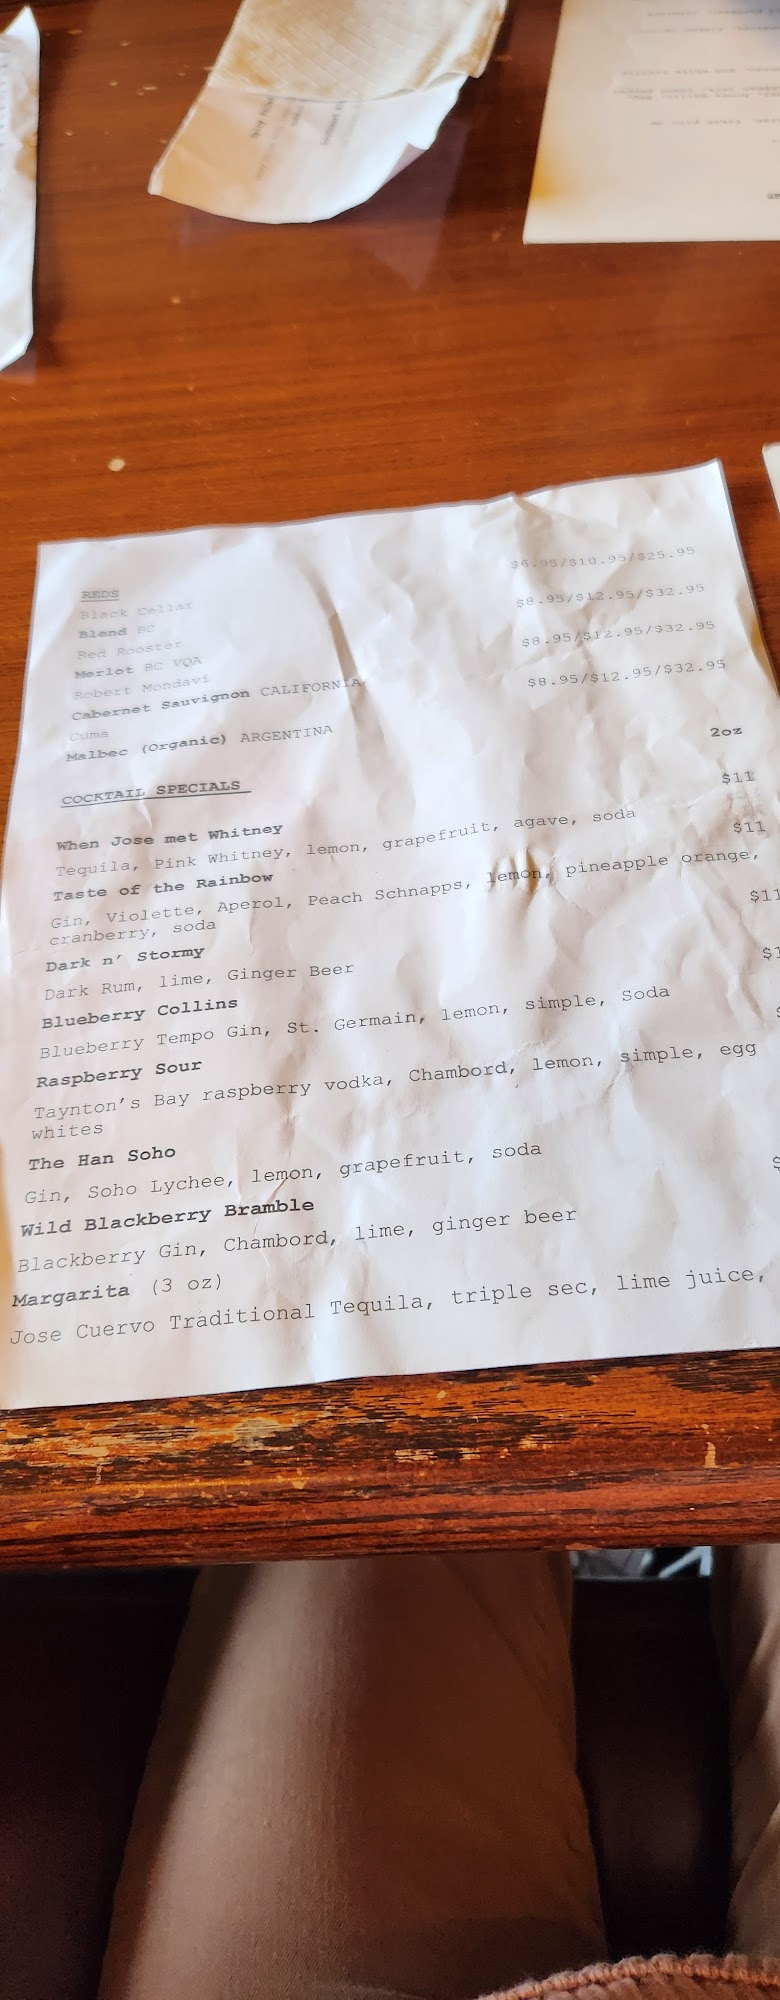 REDS
$6.95/$10.95/$25.95
Black Cellar
Blend BC
$8.95/$12.95/$32.95
Red Rooster
Merlot BC VQA
$8.95/$12.95/$32.95
Robert Mondavi
Cabernet Sauvignon CALIFORNIA
$8.95/$12.95/$32.95
Cuma
Malbec (Organic) ARGENTINA
2oz
COCKTAIL SPECIALS
$11
When Jose met Whitney
Tequila, Pink Whitney, lemon, grapefruit, agave, soda
$11
Taste of the Rainbow
Gin, Violette, Aperol, Peach Schnapps, lemon, pineapple orange,
cranberry, soda
$11
Dark n' Stormy
Dark Rum, lime, Ginger Beer
$1
Blueberry Collins
Blueberry Tempo Gin, St. Germain, lemon, simple, Soda
$
Raspberry Sour
Taynton's Bay raspberry vodka, Chambord, lemon, simple, egg
whites
The Han Soho
Gin, Soho Lychee, lemon, grapefruit, soda
$
Wild Blackberry Bramble
Blackberry Gin, Chambord, lime, ginger beer
Margarita (3 oz)
Jose Cuervo Traditional Tequila, triple sec, lime juice,